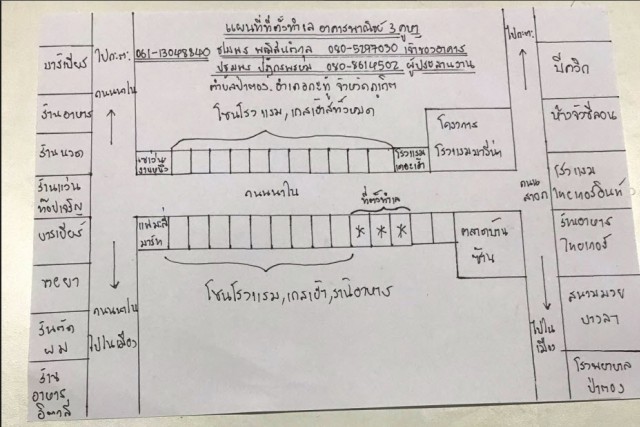 แผนที่ที่ตั้งทำเล อาคารพาณิชย์ 3 คูหา
061-13048840
080-5297030 เจ้าของอาคาร
080-8614502 ผู้ประสานงาน
ตำบลป่าตอง, อำเภอกะทู้ จังหวัดภูเก็ต
โซนโรงแรม, เกสเฮ้าส์ทั้งหมด
ไปกะตะ
บาร์เบียร์
ถนนนาใน
ร้านอาหาร
ร้านนวด
ร้านแว่น
ท๊อปเจริญ
บาร์เบียร์
ร้านตัด
ผม
ร้าน
อาหาร
อิตาลี
ถนนนาใน
ไปในเมือง
เซเว่น
โรงแรม
โครงการ
โรงแรมมารีน่า
ถนนนาใน
ที่ตั้งทำเล
แฟมิลี่
มาร์ท
* * *
ตลาดบ้าน
ซ้าน
โซนโรงแรม, เกสเฮ้า, ร้านอาหาร
ไปกะตะ
ถนน
ไปใน
เมือง
บิ๊กวิก
ห้างจังซีลอน
โรงแรม
ไทเกอร์อินท์
ร้านอาหาร
ไทเกอร์
สนามมวย
บางลา
โรงพยาบาล
ป่าตอง